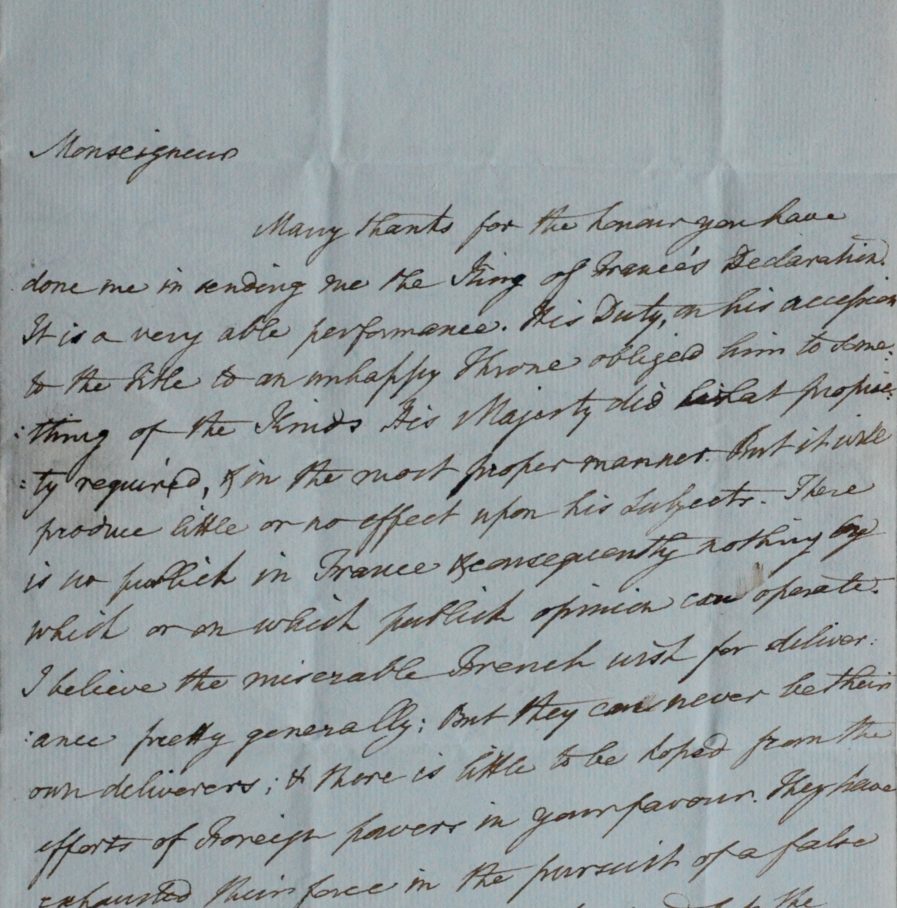 Monseigneur
Many thanks for the honour you have
done me in sending me the King of France's Declaration.
It is a very able performance. His Duty, on his accession
to the Title to an unhappy Throne obliged him to some:
:thing of the Kind. His Majesty did what proprie:
:ty required, & in the most proper manner. But it will
produce little or no effect upon his Subjects. There
is no publick in France & consequently nothing by
which or on which publick opinion can operate.
I believe the miserable French wish for deliver:
:ance pretty generally; But they can never be their
own deliverers; & there is little to be hoped from the
efforts of Foreign powers in your favour. They have
exhausted their force in the pursuit of a false
the